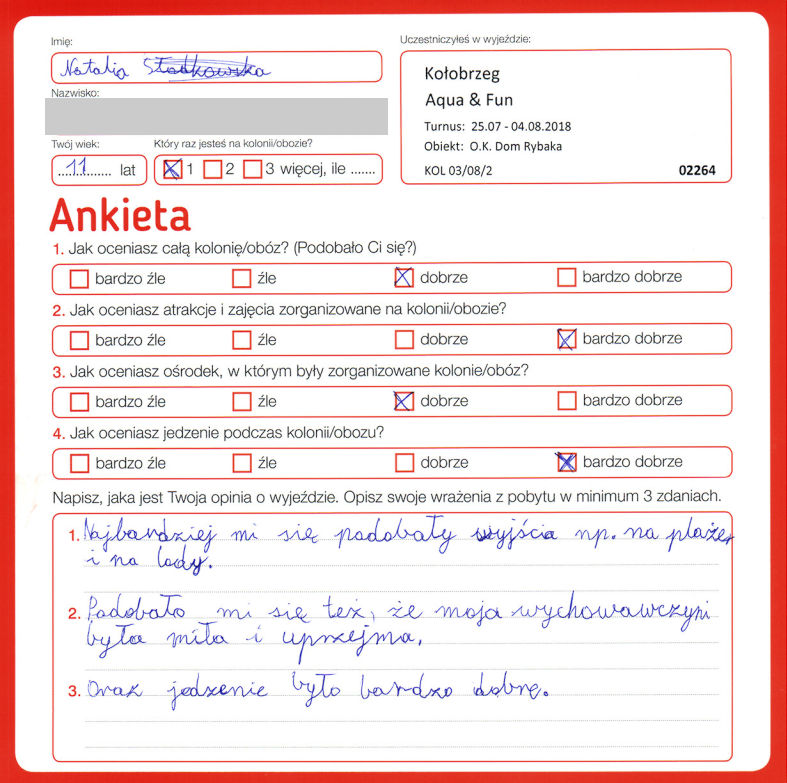 Imię:
Natalia
Nazwisko:
Twój wiek:
11 lat
Który raz jesteś na kolonii/obozie?
1 2 3 więcej, ile .......
Uczestniczyłeś w wyjeździe:
Kołobrzeg
Aqua & Fun
Turnus: 25.07 - 04.08.2018
Obiekt: O.K. Dom Rybaka
KOL 03/08/2 02264
Ankieta
1. Jak oceniasz całą kolonię/obóz? (Podobało Ci się?)
bardzo źle źle dobrze bardzo dobrze
2. Jak oceniasz atrakcje i zajęcia zorganizowane na kolonii/obozie?
bardzo źle źle dobrze bardzo dobrze
3. Jak oceniasz ośrodek, w którym były zorganizowane kolonie/obóz?
bardzo źle źle dobrze bardzo dobrze
4. Jak oceniasz jedzenie podczas kolonii/obozu?
bardzo źle źle dobrze bardzo dobrze
Napisz, jaka jest Twoja opinia o wyjeździe. Opisz swoje wrażenia z pobytu w minimum 3 zdaniach.
1. Najbardziej mi się podobały wyjścia np. na plażę
i na lody.
2. Podobało mi się też, że moja wychowawczyni
była miła i uprzejma.
3. Oraz jedzenie było bardzo dobre.